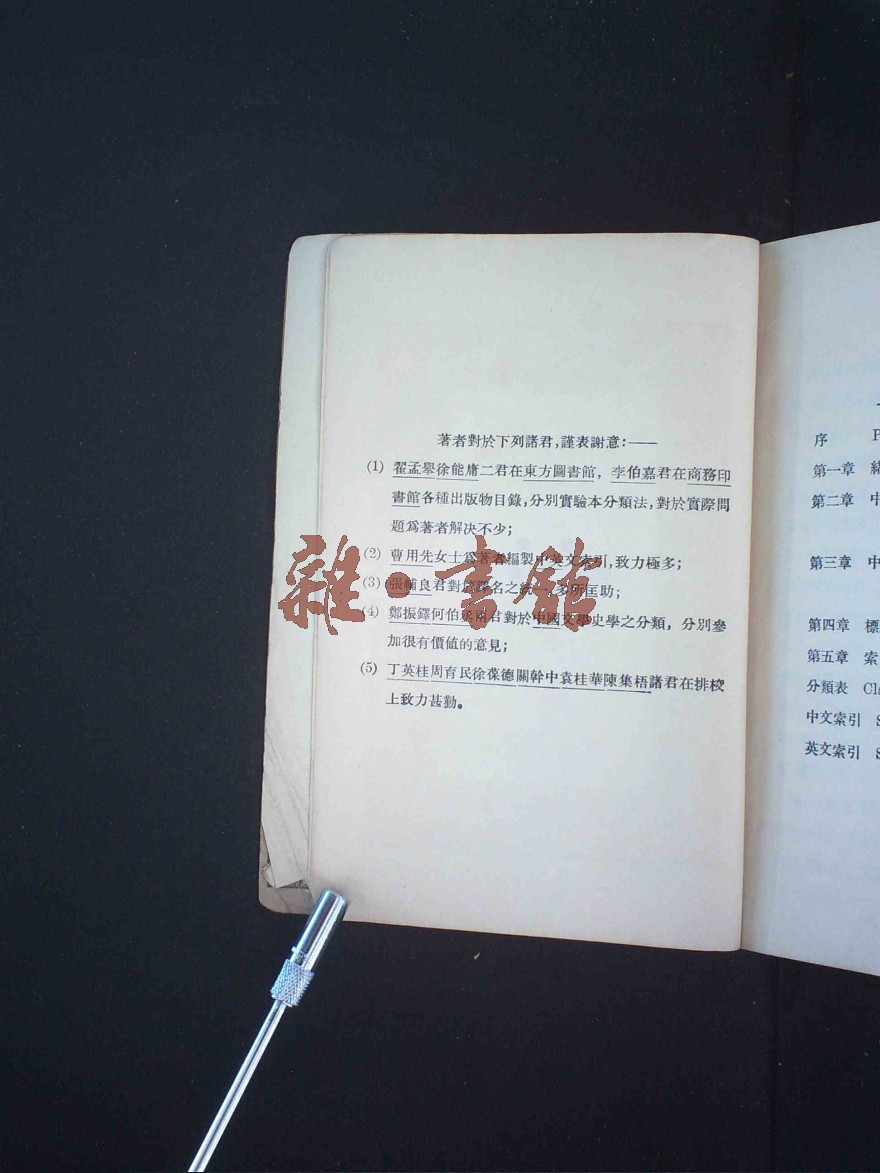 著者對於下列諸君,謹表謝意:——
(1) 翟孟舉徐能庸二君在東方圖書館, 李伯嘉君在商務印
書館各種出版物目錄,分別實驗本分類法,對於實際問
題爲著者解決不少;
(2) 曹用先女士爲著者編製中英文索引,致力極多;
(3) 張輔良君對於譯名之統一,多所匡助;
(4) 鄭振鐸何伯丞兩君對於中國文學史學之分類, 分別參
加很有價値的意見;
(5) 丁英桂周育民徐葆德關幹中袁桂華陳集梧諸君在排校
上致力甚勤。
雜·書館
序
第一章 緒
第二章 中
第三章 中
第四章 標
第五章 索
分類表 Cl
中文索引 S
英文索引 S